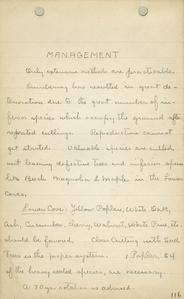 MANAGEMENT
Only extensive methods are practicable.
Lumbering has resulted in great de-
terioration due to the great number of in-
ferior species which occupy the ground after
repeated cuttings. Reproduction cannot
get started. Valuable species are culled
out leaving defective Trees and inferior species
like Beech Magnolia & Maple in the Lower
Coves.
Lower Cove: Yellow Poplar, White Oak,
Ash, Cucumber, Cherry, Walnut, White Pine, etc.
should be favored. Clear Cutting with Seed
Trees is the proper system. 1 Poplar, &
of the heavy seeded species, are necessary.
A 70 yr. rotation is advised.
116